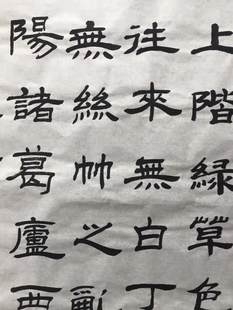 上階緑草色
往來無白丁
無絲帅之亂
陽諸葛廬西